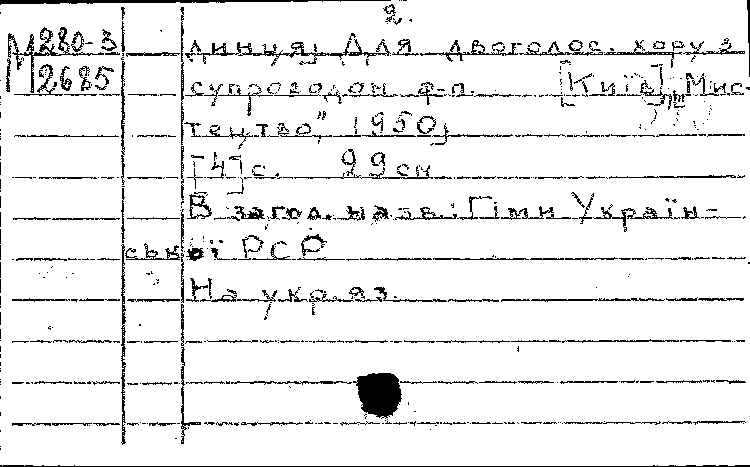 2.
М 280-3
2685
диция] Для двоголос. хору з
супрогодом ф-п. [Київ], "Мис-
тецтво", 1950]
[4] с. 29 см
В загол. назв.: Гімн Україн-
ської РСР
На укр. яз.